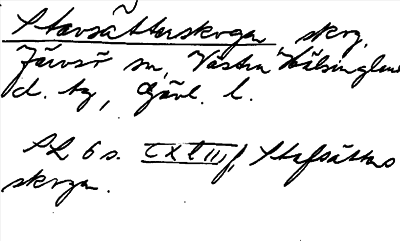 Stavsätterskogen skog,
Järvsö sn, Västra Hälsinglands
d. tg, Gävl. l.
SL 6 s. CXLIII f, Stafsätters
skogen.